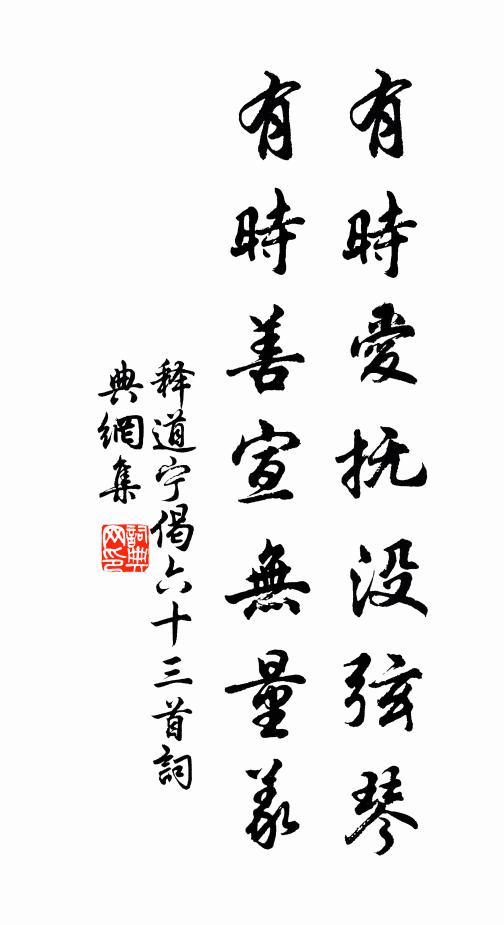 有時愛抚没弦琴
有時善宣無量義
释道宁偈六十三首詞
典網集
詞典網印